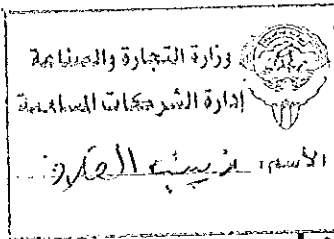 وزارة التجارة والصناعة
إدارة الشركات المساهمة
الاسم: زينب